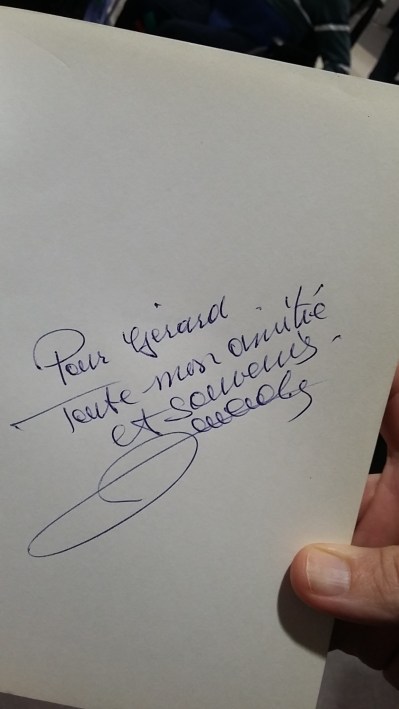 Pour Gérard
Toute mon amitié
et souvenirs.